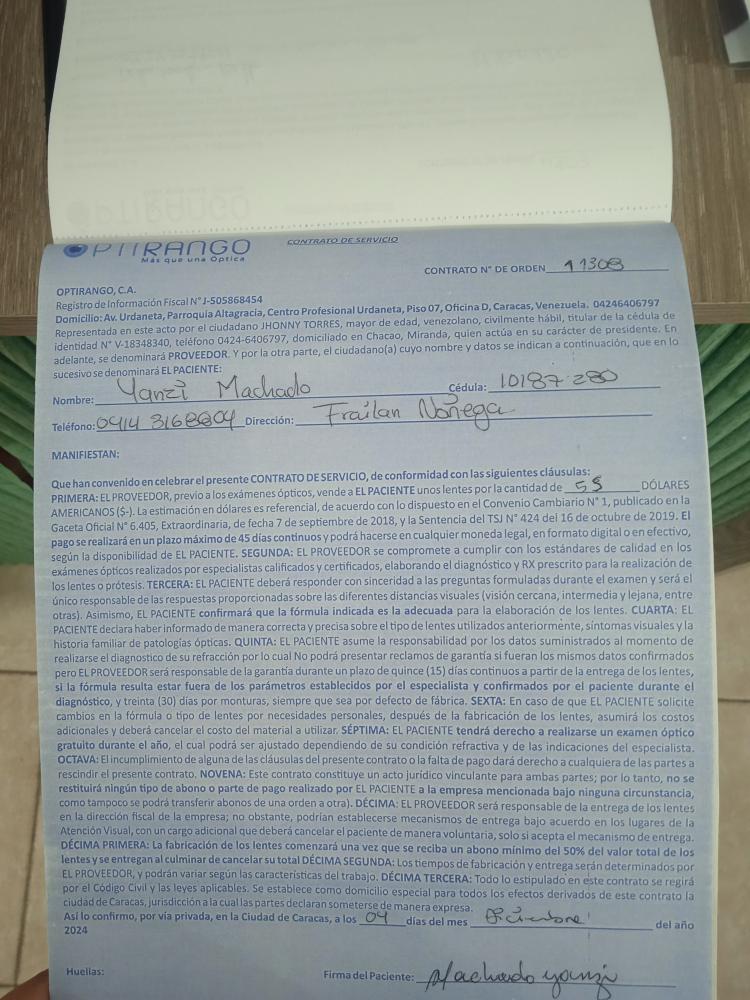 OPTIRANGO
Más que una Optica
CONTRATO DE SERVICIO
CONTRATO N° DE ORDEN 11308
OPTIRANGO, C.A.
Registro de Información Fiscal N° J-505868454
Domicilio: Av. Urdaneta, Parroquia Altagracia, Centro Profesional Urdaneta, Piso 07, Oficina D, Caracas, Venezuela. 04246406797
Representada en este acto por el ciudadano JHONNY TORRES, mayor de edad, venezolano, civilmente hábil, titular de la cédula de
identidad N° V-18348340, teléfono 0424-6406797, domiciliado en Chacao, Miranda, quien actúa en su carácter de presidente. En
adelante, se denominará PROVEEDOR. Y por la otra parte, el ciudadano(a) cuyo nombre y datos se indican a continuación, que en lo
sucesivo se denominará EL PACIENTE:
Nombre: Yanzi Machado Cédula: 10187280
Teléfono: 0414 3168804 Dirección: Frailan Noñega
MANIFIESTAN:
Que han convenido en celebrar el presente CONTRATO DE SERVICIO, de conformidad con las siguientes cláusulas:
PRIMERA: EL PROVEEDOR, previo a los exámenes ópticos, vende a EL PACIENTE unos lentes por la cantidad de 55 DÓLARES
AMERICANOS ($-). La estimación en dólares es referencial, de acuerdo con lo dispuesto en el Convenio Cambiario N° 1, publicado en la
Gaceta Oficial N° 6.405, Extraordinaria, de fecha 7 de septiembre de 2018, y la Sentencia del TSJ N° 424 del 16 de octubre de 2019. El
pago se realizará en un plazo máximo de 45 días continuos y podrá hacerse en cualquier moneda legal, en formato digital o en efectivo,
según la disponibilidad de EL PACIENTE. SEGUNDA: EL PROVEEDOR se compromete a cumplir con los estándares de calidad en los
exámenes ópticos realizados por especialistas calificados y certificados, elaborando el diagnóstico y RX prescrito para la realización de
los lentes o prótesis. TERCERA: EL PACIENTE deberá responder con sinceridad a las preguntas formuladas durante el examen y será el
único responsable de las respuestas proporcionadas sobre las diferentes distancias visuales (visión cercana, intermedia y lejana, entre
otras). Asimismo, EL PACIENTE confirmará que la fórmula indicada es la adecuada para la elaboración de los lentes. CUARTA: EL
PACIENTE declara haber informado de manera correcta y precisa sobre el tipo de lentes utilizados anteriormente, síntomas visuales y la
historia familiar de patologías ópticas. QUINTA: EL PACIENTE asume la responsabilidad por los datos suministrados al momento de
realizarse el diagnostico de su refracción por lo cual No podrá presentar reclamos de garantía si fueran los mismos datos confirmados
pero EL PROVEEDOR será responsable de la garantía durante un plazo de quince (15) días continuos a partir de la entrega de los lentes,
si la fórmula resulta estar fuera de los parámetros establecidos por el especialista y confirmados por el paciente durante el
diagnóstico, y treinta (30) días por monturas, siempre que sea por defecto de fábrica. SEXTA: En caso de que EL PACIENTE solicite
cambios en la fórmula o tipo de lentes por necesidades personales, después de la fabricación de los lentes, asumirá los costos
adicionales y deberá cancelar el costo del material a utilizar. SÉPTIMA: EL PACIENTE tendrá derecho a realizarse un examen óptico
gratuito durante el año, el cual podrá ser ajustado dependiendo de su condición refractiva y de las indicaciones del especialista.
OCTAVA: El incumplimiento de alguna de las cláusulas del presente contrato o la falta de pago dará derecho a cualquiera de las partes a
rescindir el presente contrato. NOVENA: Este contrato constituye un acto jurídico vinculante para ambas partes; por lo tanto, no se
restituirá ningún tipo de abono o parte de pago realizado por EL PACIENTE a la empresa mencionada bajo ninguna circunstancia,
como tampoco se podrá transferir abonos de una orden a otra). DÉCIMA: EL PROVEEDOR será responsable de la entrega de los lentes
en la dirección fiscal de la empresa; no obstante, podrían establecerse mecanismos de entrega bajo acuerdo en los lugares de la
Atención Visual, con un cargo adicional que deberá cancelar el paciente de manera voluntaria, solo si acepta el mecanismo de entrega.
DÉCIMA PRIMERA: La fabricación de los lentes comenzará una vez que se reciba un abono mínimo del 50% del valor total de los
lentes y se entregan al culminar de cancelar su total DÉCIMA SEGUNDA: Los tiempos de fabricación y entrega serán determinados por
EL PROVEEDOR, y podrán variar según las características del trabajo. DÉCIMA TERCERA: Todo lo estipulado en este contrato se regirá
por el Código Civil y las leyes aplicables. Se establece como domicilio especial para todos los efectos derivados de este contrato la
ciudad de Caracas, jurisdicción a la cual las partes declaran someterse de manera expresa.
Así lo confirmo, por vía privada, en la Ciudad de Caracas, a los 04 días del mes Diciembre del año
2024
Huellas:
Firma del Paciente: Machado yanzi